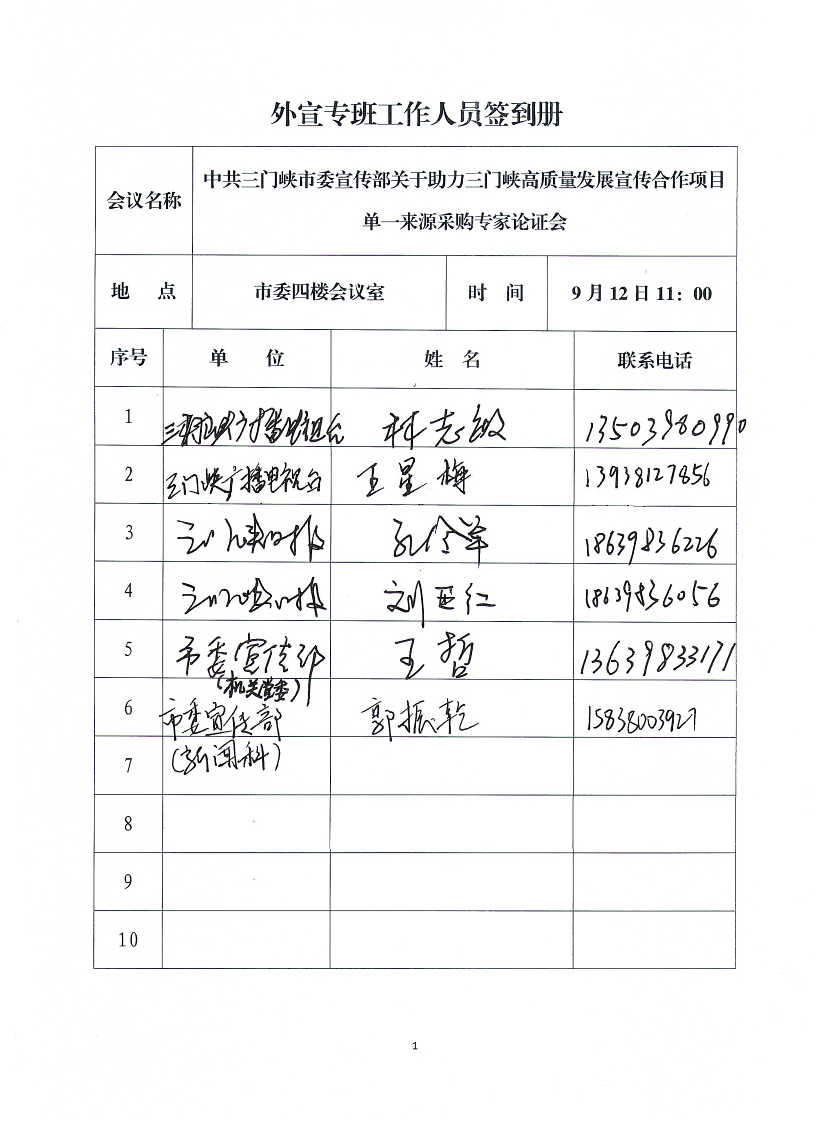 外宣专班工作人员签到册
会议名称 中共三门峡市委宣传部关于助力三门峡高质量发展宣传合作项目
单一来源采购专家论证会
地 点 市委四楼会议室 时 间 9月12日11：00
序号 单 位 姓 名 联系电话
1 三门峡广播电视台 林志敏 13503980990
2 三门峡广播电视台 王星梅 13938127856
3 三门峡日报 孔令军 18639836226
4 三门峡日报 刘亚仁 18639836056
5 市委宣传部 王哲 13639833171
(机关党委)
6 市委宣传部 郭振乾 15838003927
7 (新闻科)
8
9
10
1